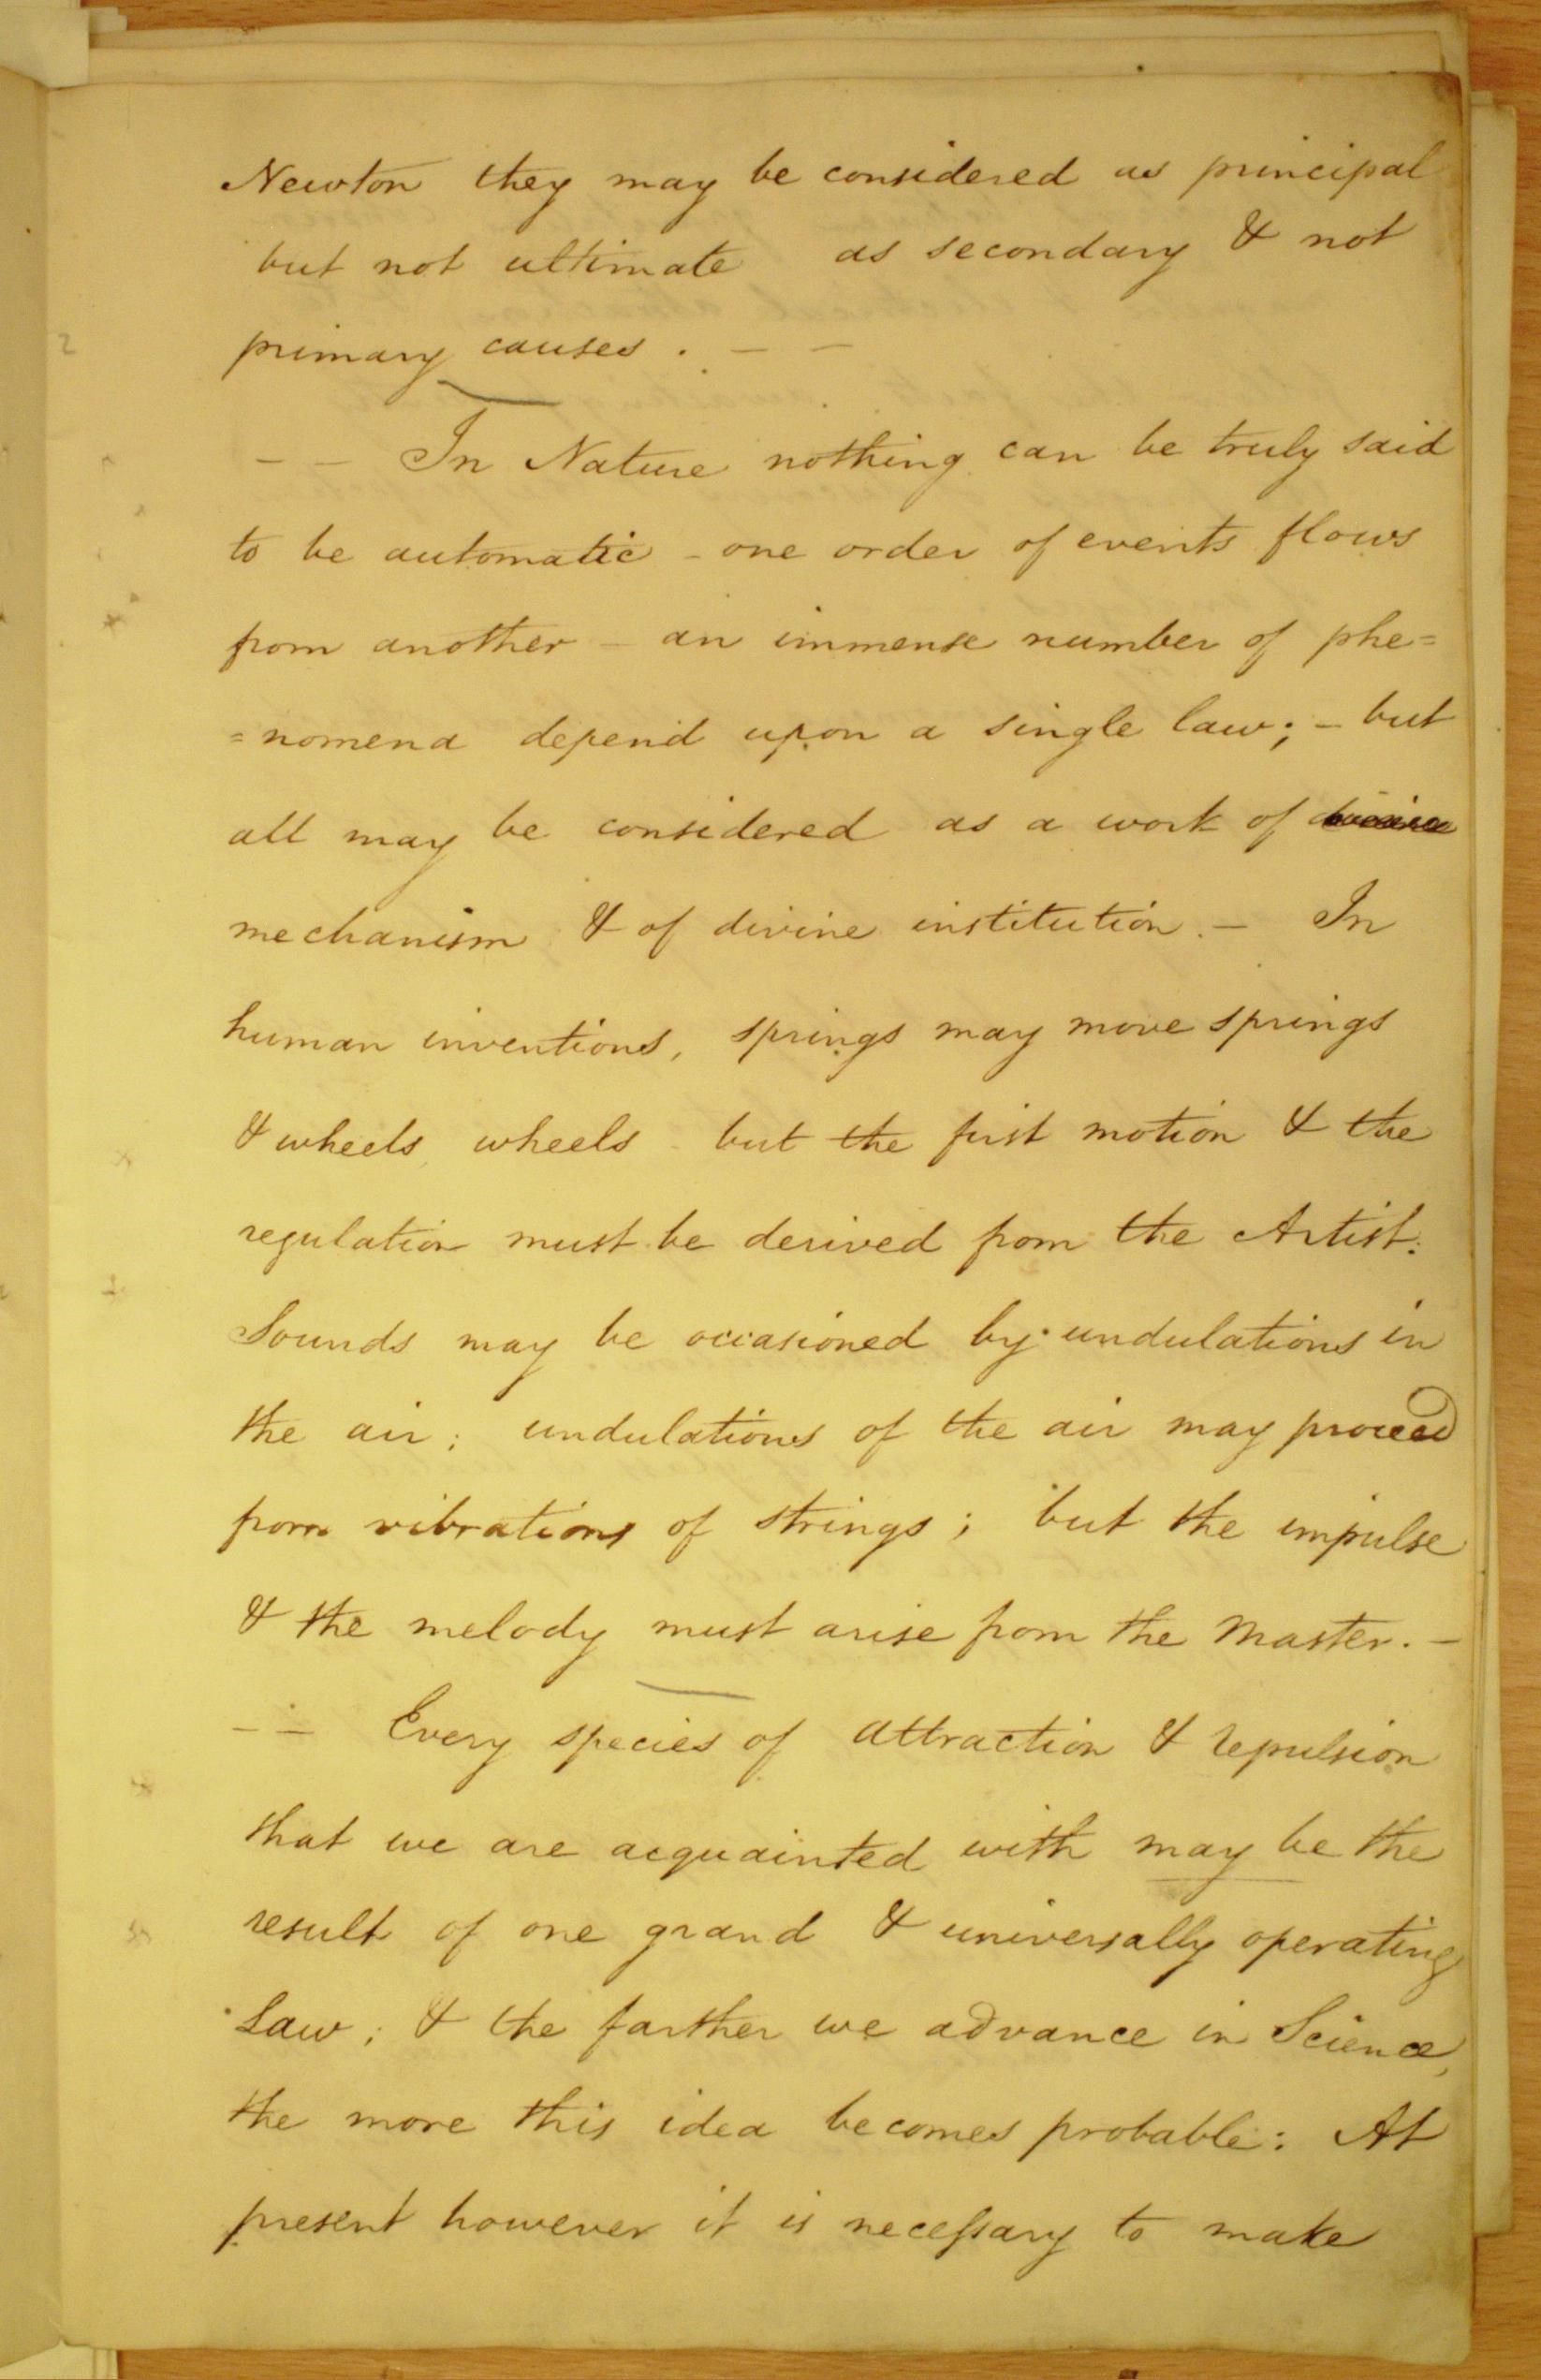 Newton they may be considered as principal
but not ultimate as secondary & not
primary causes. — —
— — In Nature nothing can be truly said
to be automatic – one order of events flows
from another – an immense number of phe=
=nomena depend upon a single law; – but
all may be considered as a work of
mechanism & of divine institution. – In
human inventions, springs may move springs
& wheels, wheels – but the first motion & the
regulation must be derived from the Artist.
Sounds may be occasioned by undulations in
the air; undulations of the air may proceed
from vibrations of strings; but the impulse
& the melody must arise from the Master. –
— — Every species of attraction & repulsion
that we are acquainted with may be the
result of one grand & universally operating
Law; & the farther we advance in Science,
the more this idea becomes probable: At
present however it is necessary to make